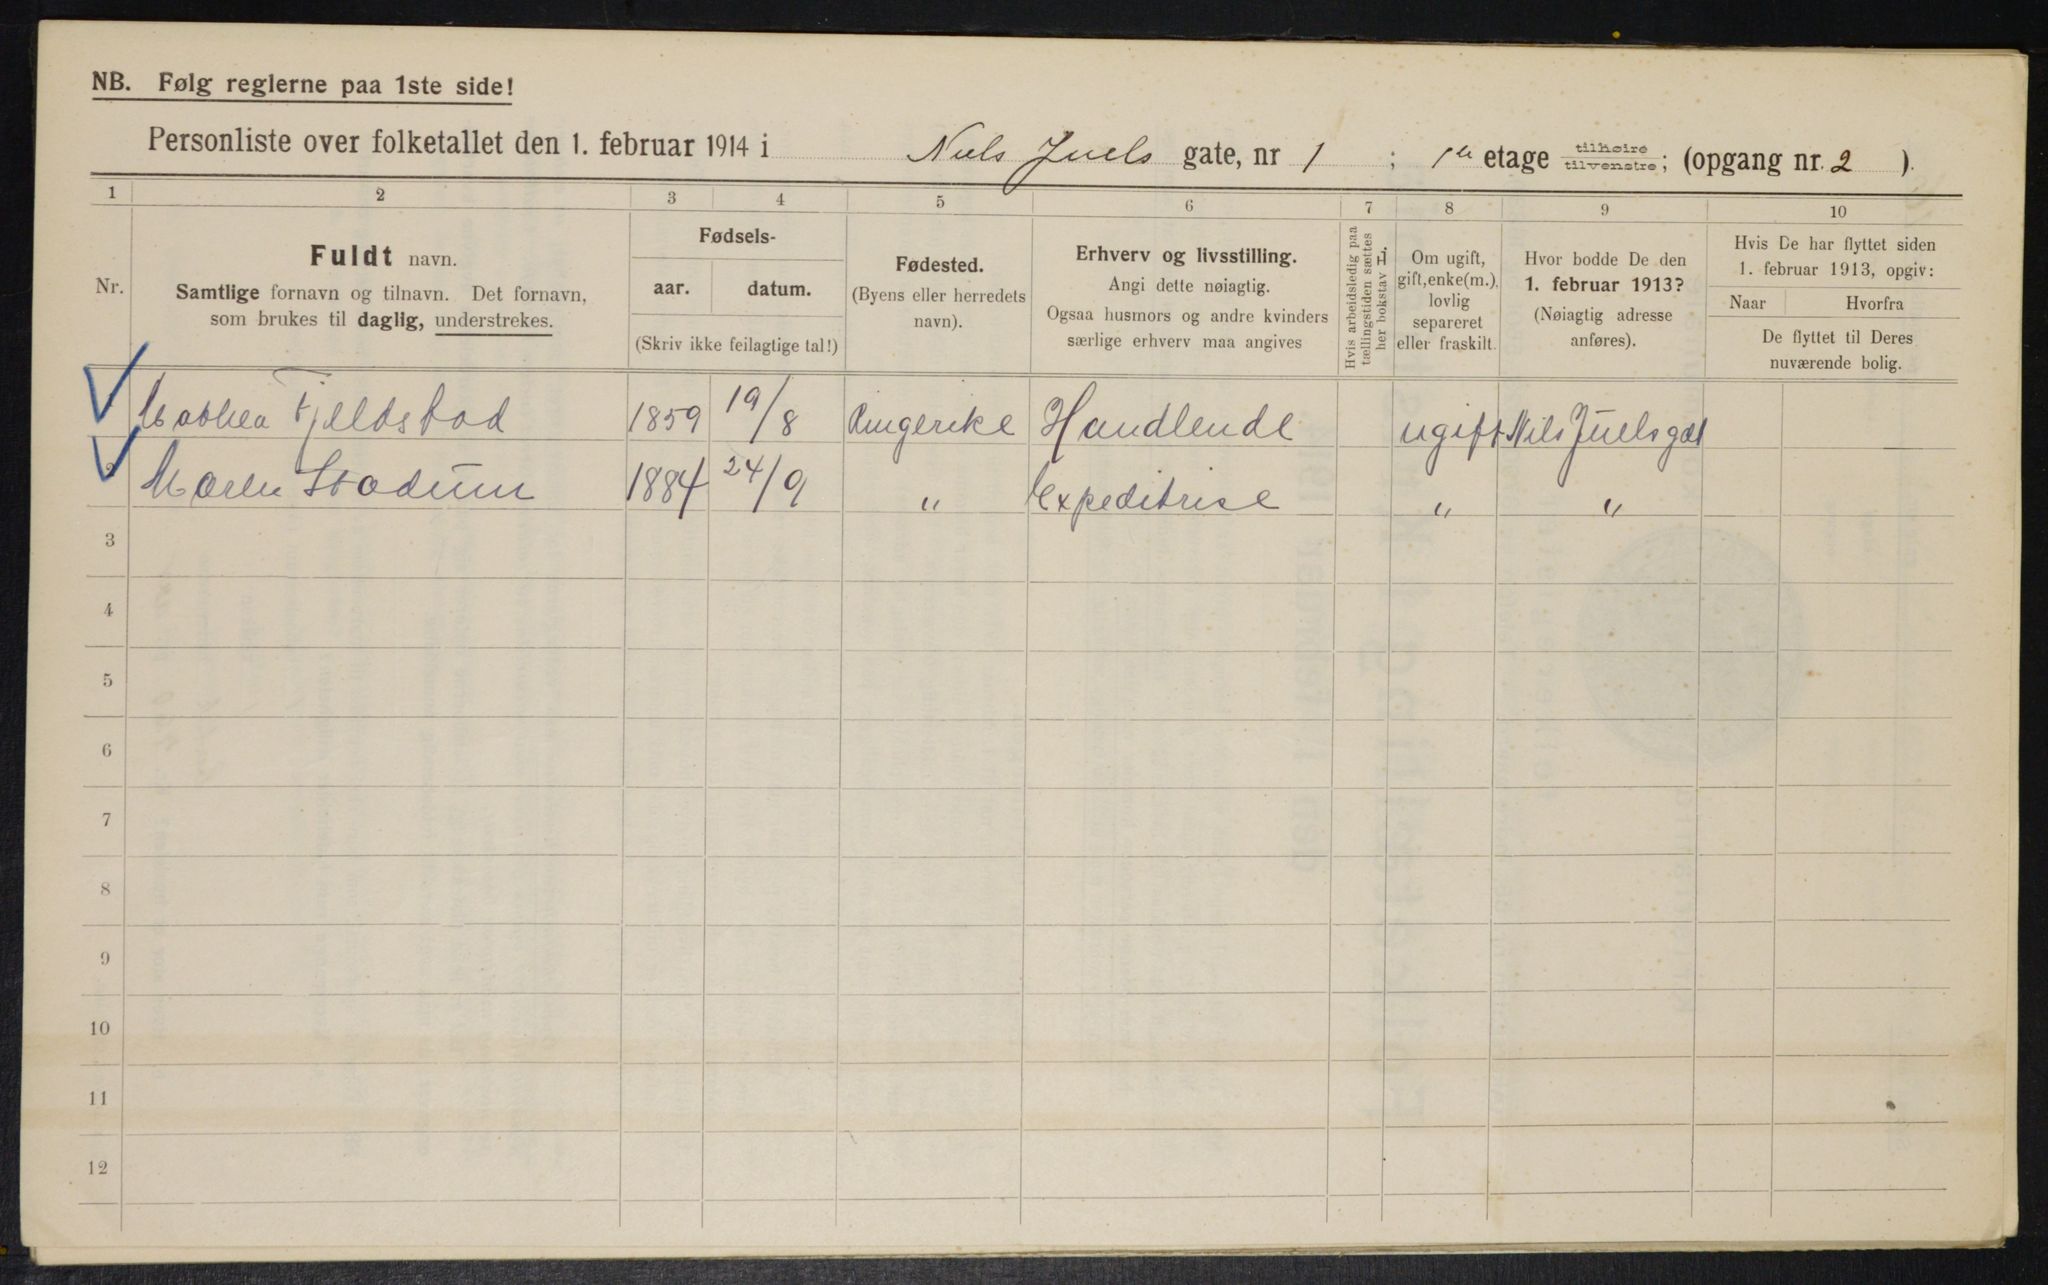 NB. Følg reglerne paa 1ste side!
Personliste over folketallet den 1. februar 1914 i Niels Juels gate, nr 1 ; 1ste etage tilhøire tilvenstre; (opgang nr. 2 ).
1 2 3 4 5 6 7 8 9 10
Nr.
Fuldt navn.
Samtlige fornavn og tilnavn. Det fornavn,
som brukes til daglig, understrekes.
Fødsels-
aar. datum.
(Skriv ikke feilagtige tal!)
Fødested.
(Byens eller herredets
navn).
Erhverv og livsstilling.
Angi dette nøiagtig.
Ogsaa husmors og andre kvinders
særlige erhverv maa angives
Hvis arbeidsledig paa
tællingstiden sættes
her bokstav L.
Om ugift,
gift, enke(m.),
lovlig
separeret
eller fraskilt.
Hvor bodde De den
1. februar 1913?
(Nøiagtig adresse
anføres).
Hvis De har flyttet siden
1. februar 1913, opgiv:
Naar Hvorfra
De flyttet til Deres
nuværende bolig.
Mathea Fjeldstad 1859 19/8 Ringerike Handlende ugift Nils Juelsgat
Maren Stadum 1884 24/9 " Expeditrise " "
3
4
5
6
7
8
9
10
11
12